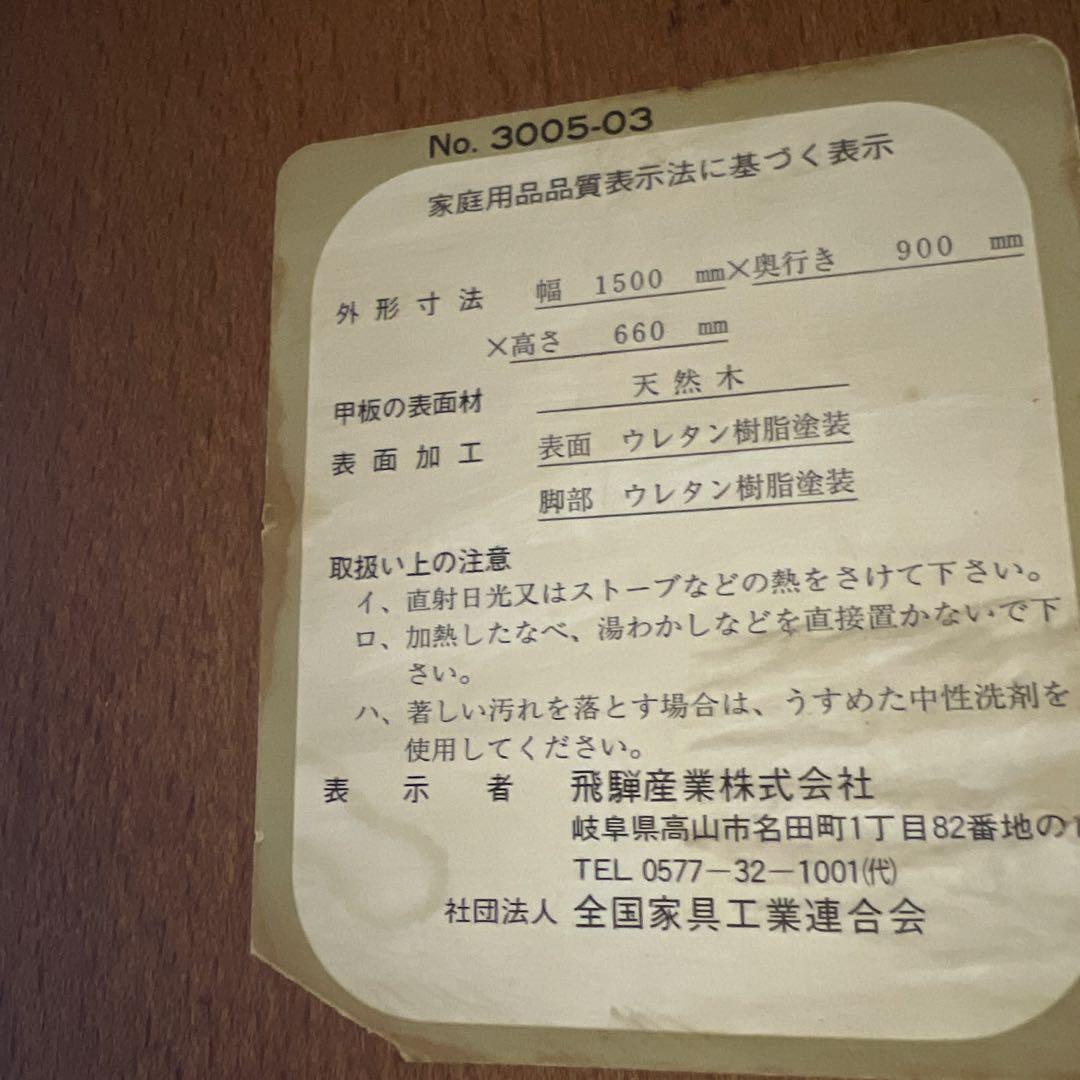 No. 3005-03
家庭用品品質表示法に基づく表示
外形寸法 幅 1500 mm×奥行き 900 mm
×高さ 660 mm
甲板の表面材 天然木
表面加工 表面 ウレタン樹脂塗装
脚部 ウレタン樹脂塗装
取扱い上の注意
イ、直射日光又はストーブなどの熱をさけて下さい。
ロ、加熱したなべ、湯わかしなどを直接置かないで下
さい。
ハ、著しい汚れを落とす場合は、うすめた中性洗剤を
使用してください。
表示者 飛騨産業株式会社
岐阜県高山市名田町1丁目82番地の1
TEL 0577-32-1001㈹
社団法人 全国家具工業連合会